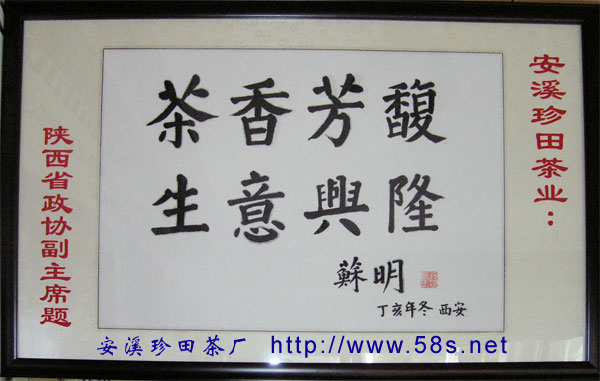 安溪珍田茶业：
茶香芳馥
生意興隆
蘇明
丁亥年冬 西安
陕西省政协副主席题
安溪珍田茶厂 http://www.58s.net